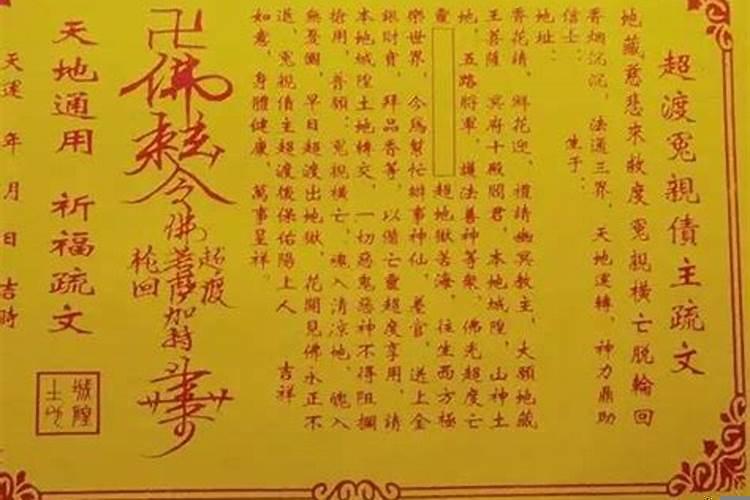 超渡冤親債主疏文
地藏慈悲來救度冤親橫亡脫輪回
香烟沉沉，法通三界，天地運轉，神力鼎助
信士： 生于：
地址：
香花請，鮮花迎，禮請幽冥教主，大願地藏
王菩薩 冥府十殿閻君，本地城隍，山神土
地，五路將軍，護法善神等眾，佛光超度亡
靈 超地獄苦海，往生西方極
樂世界，今爲幫忙辦事神仙，差官，送上金
銀財寶，拜品香等，以備亡靈超度享用，請
本地城隍土地轉交，一切惡鬼惡神不得阻攔
搶用，普願：冤親橫亡，魂入清凉地，魄入
無憂國，早日超渡出地獄，花開見佛永正不
退，冤親債主超渡後保佑陽上人 吉祥
如意，身體健康，萬事呈祥。
卍
佛
敕
令
佛菩薩加持
超度
輪回
天地通用 祈福疏文
城隍
土地
天運 年 月 日 吉時